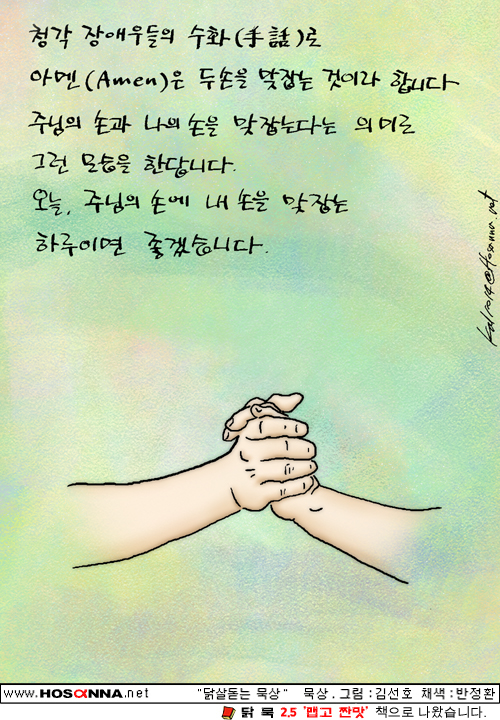 청각 장애우들의 수화(手話)로
아멘(Amen)은 두손을 맞잡는 것이라 합니다
주님의 손과 나의 손을 맞잡는다는 의미로
그런 모습을 한답니다.
오늘, 주님의 손에 내 손을 맞잡는
하루이면 좋겠습니다.
www.HOSANNA.net
"닭살돋는 묵상" 묵상.그림:김선호 채색:반정환
닭 묵 2.5 '맵고 짠맛' 책으로 나왔습니다.